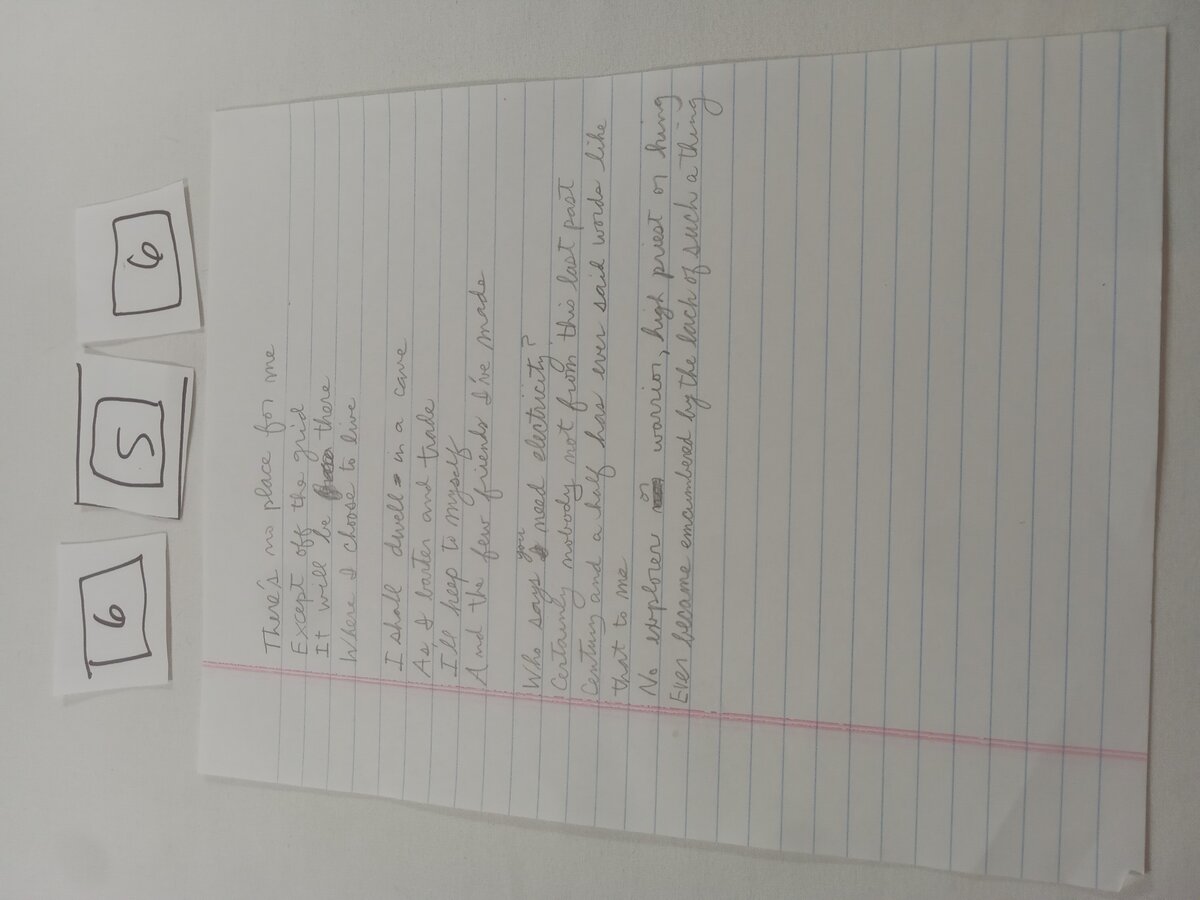 6 5 6
There's no place for me
Except off the grid
It will be there
Where I choose to live
I shall dwell in a cave
As I barter and trade
I'll keep to myself
And the few friends I've made
Who says you need electricity?
Certainly nobody not from this last past
Century and a half has ever said words like
that to me
No explorer or warrior, high priest or king
Ever became encumbered by the lack of such a thing